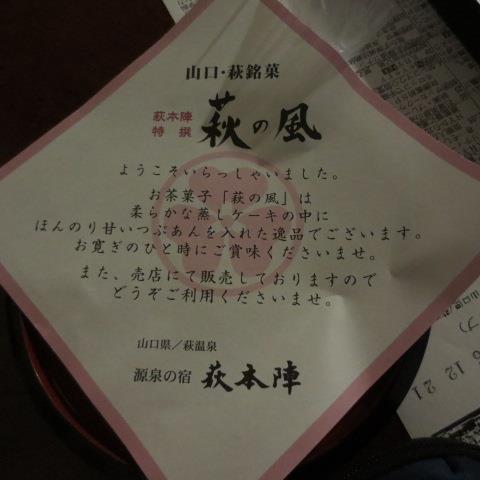 山口・萩銘菓
萩本陣
特撰
萩の風
ようこそいらっしゃいました。
お茶菓子「萩の風」は
柔らかな蒸しケーキの中に
ほんのり甘いつぶあんを入れた逸品でございます。
お寛ぎのひと時にご賞味くださいませ。
また、売店にて販売しておりますので
どうぞご利用くださいませ。
山口県／萩温泉
源泉の宿 萩本陣